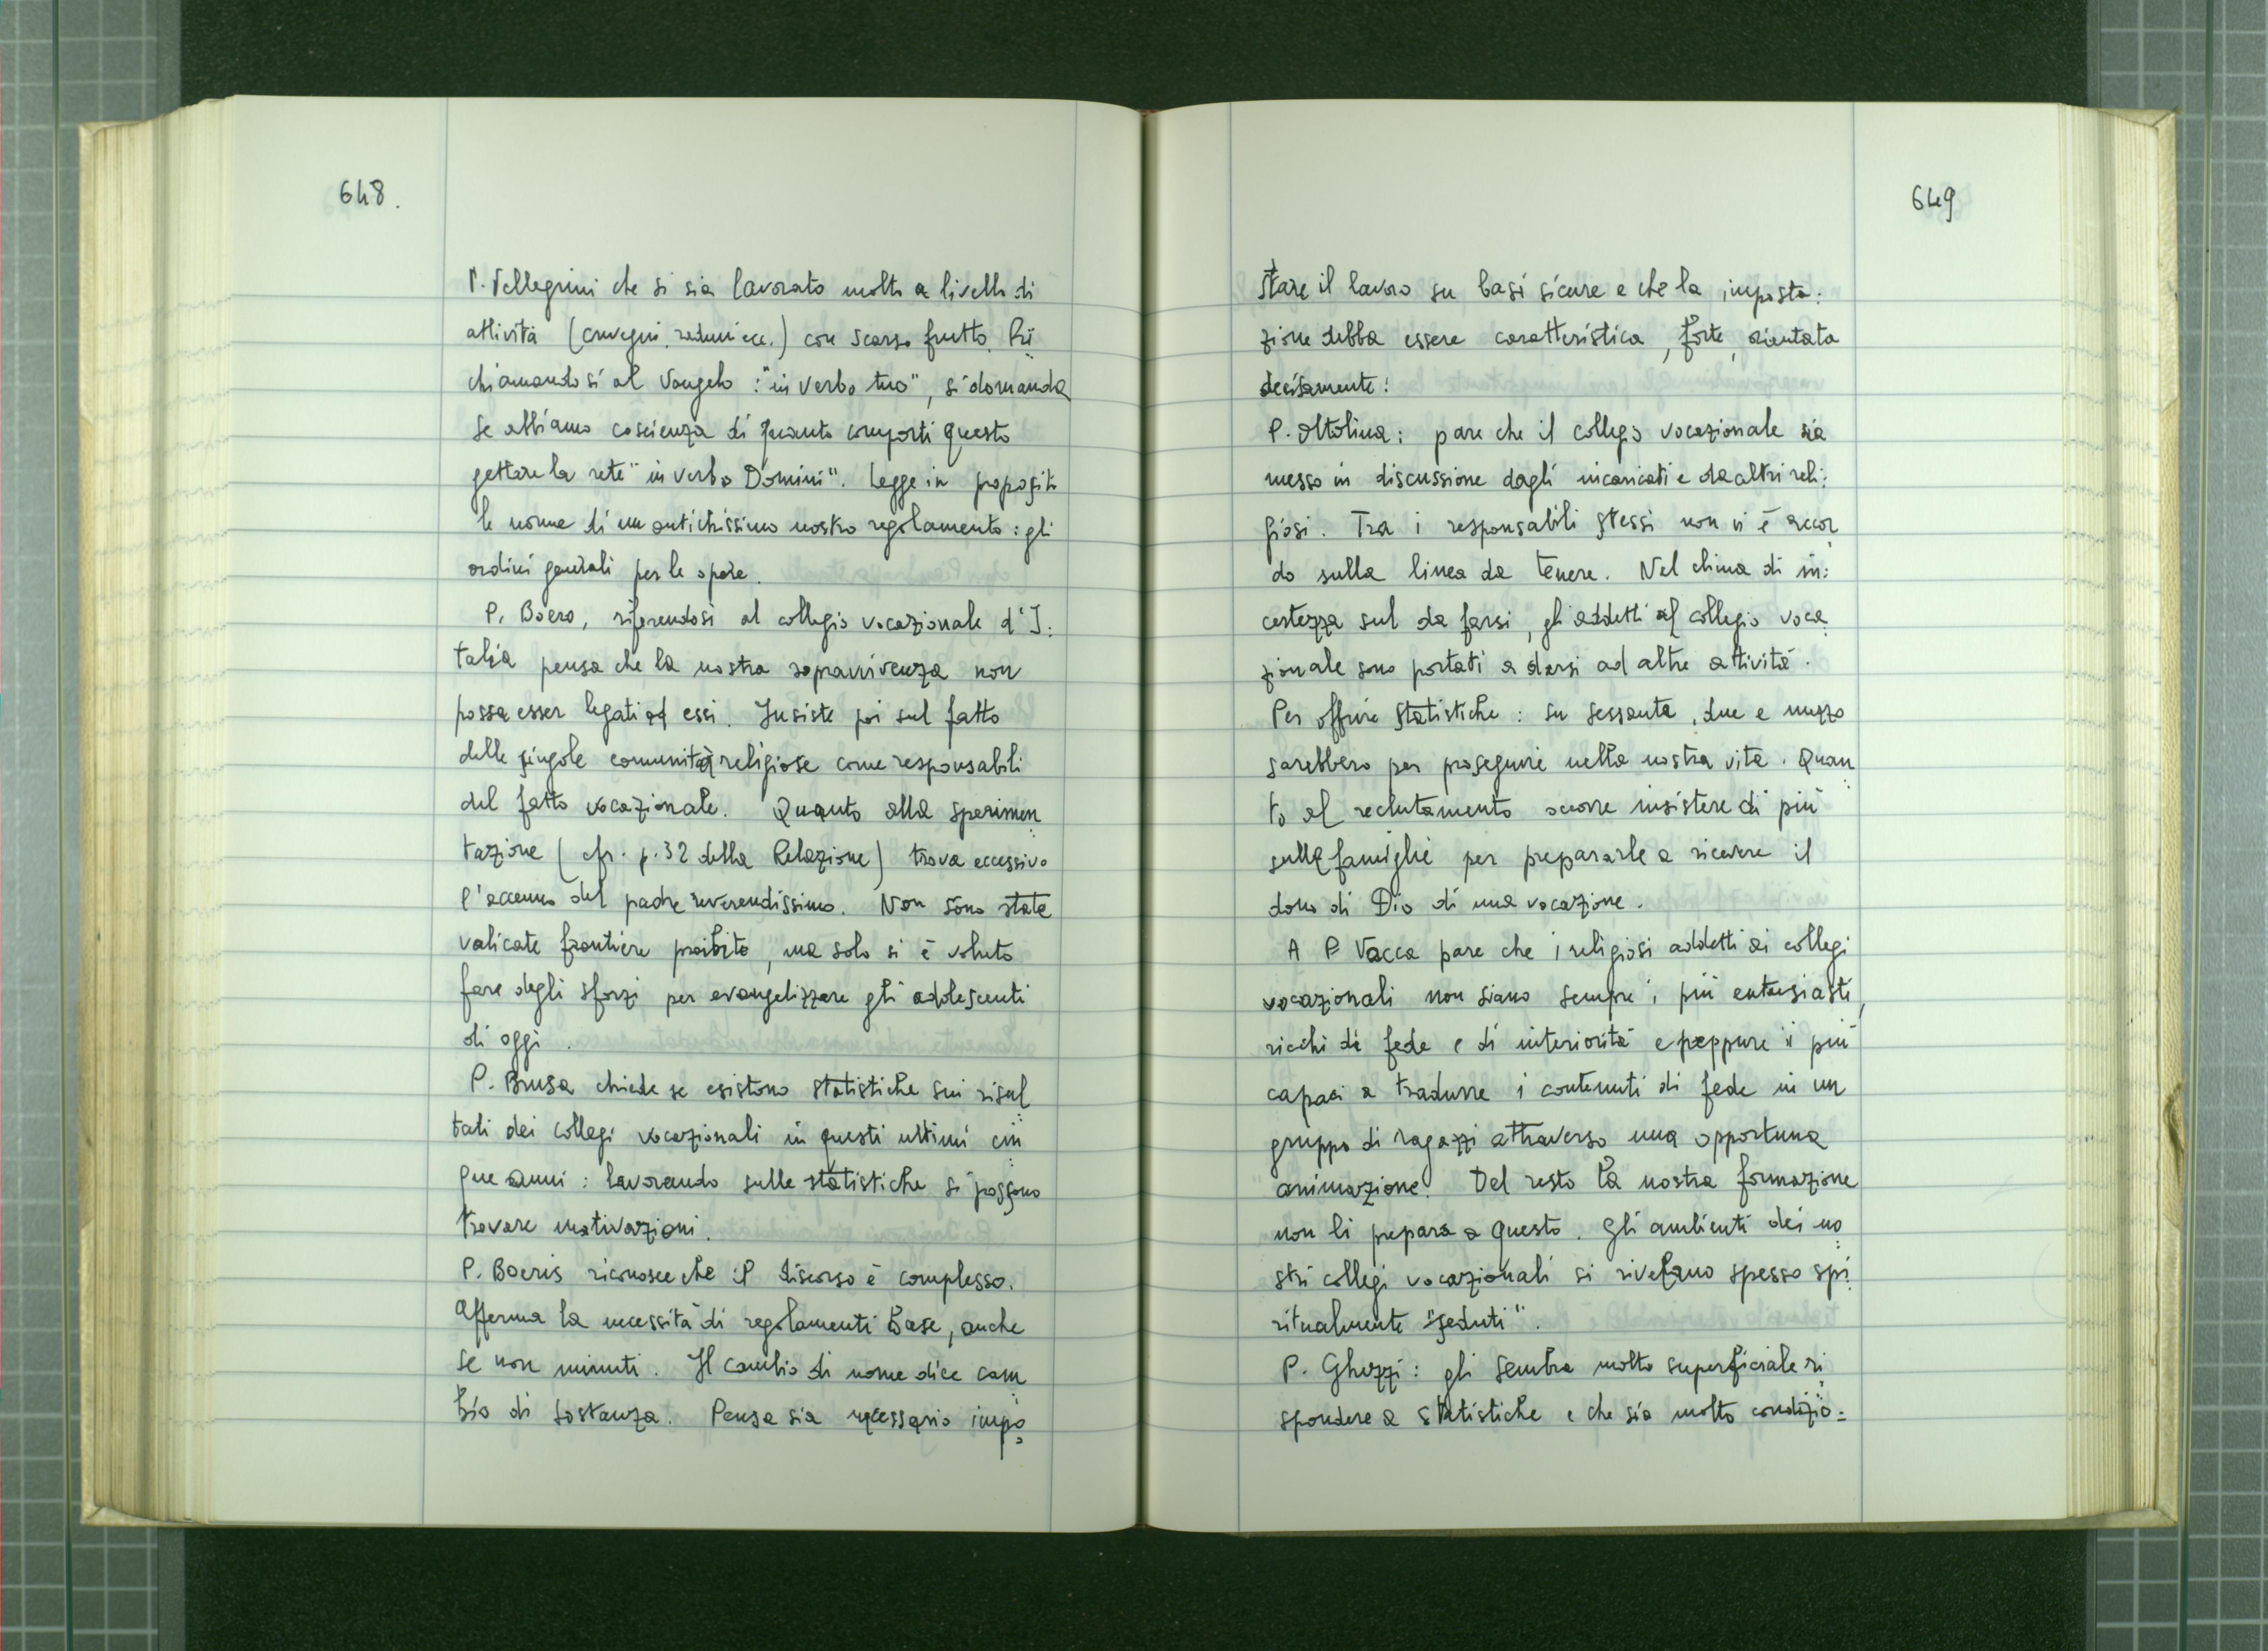 648.
P. Pellegrini che si sia lavorato molto a livello di
attività (convegni, raduni ecc.) con scarso frutto. Ri
chiamandosi al Vangelo : "in verbo tuo", si domanda
se abbiamo coscienza di quanto comporti questo
gettare la rete "in verbo Domini". Legge in proposito
le norme di un antichissimo nostro regolamento : gli
ordini generali per le opere.
P. Boero, riferendosi al collegio vocazionale d'I:
talia pensa che la nostra sopravvivenza non
possa esser legati ad essi. Insiste poi sul fatto
delle singole comunità religiose come responsabili
del fatto vocazionale. Quanto alla sperimen
tazione (cfr. p. 32 della Relazione) trova eccessivo
l'accenno del padre reverendissimo. Non sono state
valicate frontiere proibite, ma solo si è voluto
fare degli sforzi per evangelizzare gli adolescenti
di oggi.
P. Brusa chiede se esistono statistiche sui risul
tati dei collegi vocazionali in questi ultimi cin
que anni : lavorando sulle statistiche si possono
trovare motivazioni.
P. Boeris riconosce che il discorso è complesso.
Afferma la necessità di regolamenti base, anche
se non minuti. Il cambio di nome dice cam
bio di sostanza. Pensa sia necessario impo
649
stare il lavoro su basi sicure e che la imposta:
zione debba essere caratteristica, forte, orientata
decisamente!
P. Ottolina : pare che il collegio vocazionale sia
messo in discussione dagli incaricati e da altri reli:
giosi. Tra i responsabili stessi non vi è accor
do sulla linea da tenere. Nel clima di in:
certezza sul da farsi, gli addetti al collegio voca
zionale sono portati a darsi ad altre attività.
Per offrire statistiche : su sessanta, due e mezzo
sarebbero per proseguire nella nostra vita. Quan
to al reclutamento occorre insistere di più
sulle famiglie per prepararle a ricevere il
dono di Dio di una vocazione.
A P. Vacca pare che i religiosi addetti ai collegi
vocazionali non siano sempre i più entusiasti,
ricchi di fede e di interiorità e neppure i più
capaci a tradurre i contenuti di fede in un
gruppo di ragazzi attraverso una opportuna
animazione. Del resto la nostra formazione
non li prepara a questo. Gli ambienti dei no
stri collegi vocazionali si rivelano spesso spi
ritualmente "seduti".
P. Ghezzi : gli sembra molto superficiale ri
spondere a statistiche e che sia molto condizio=